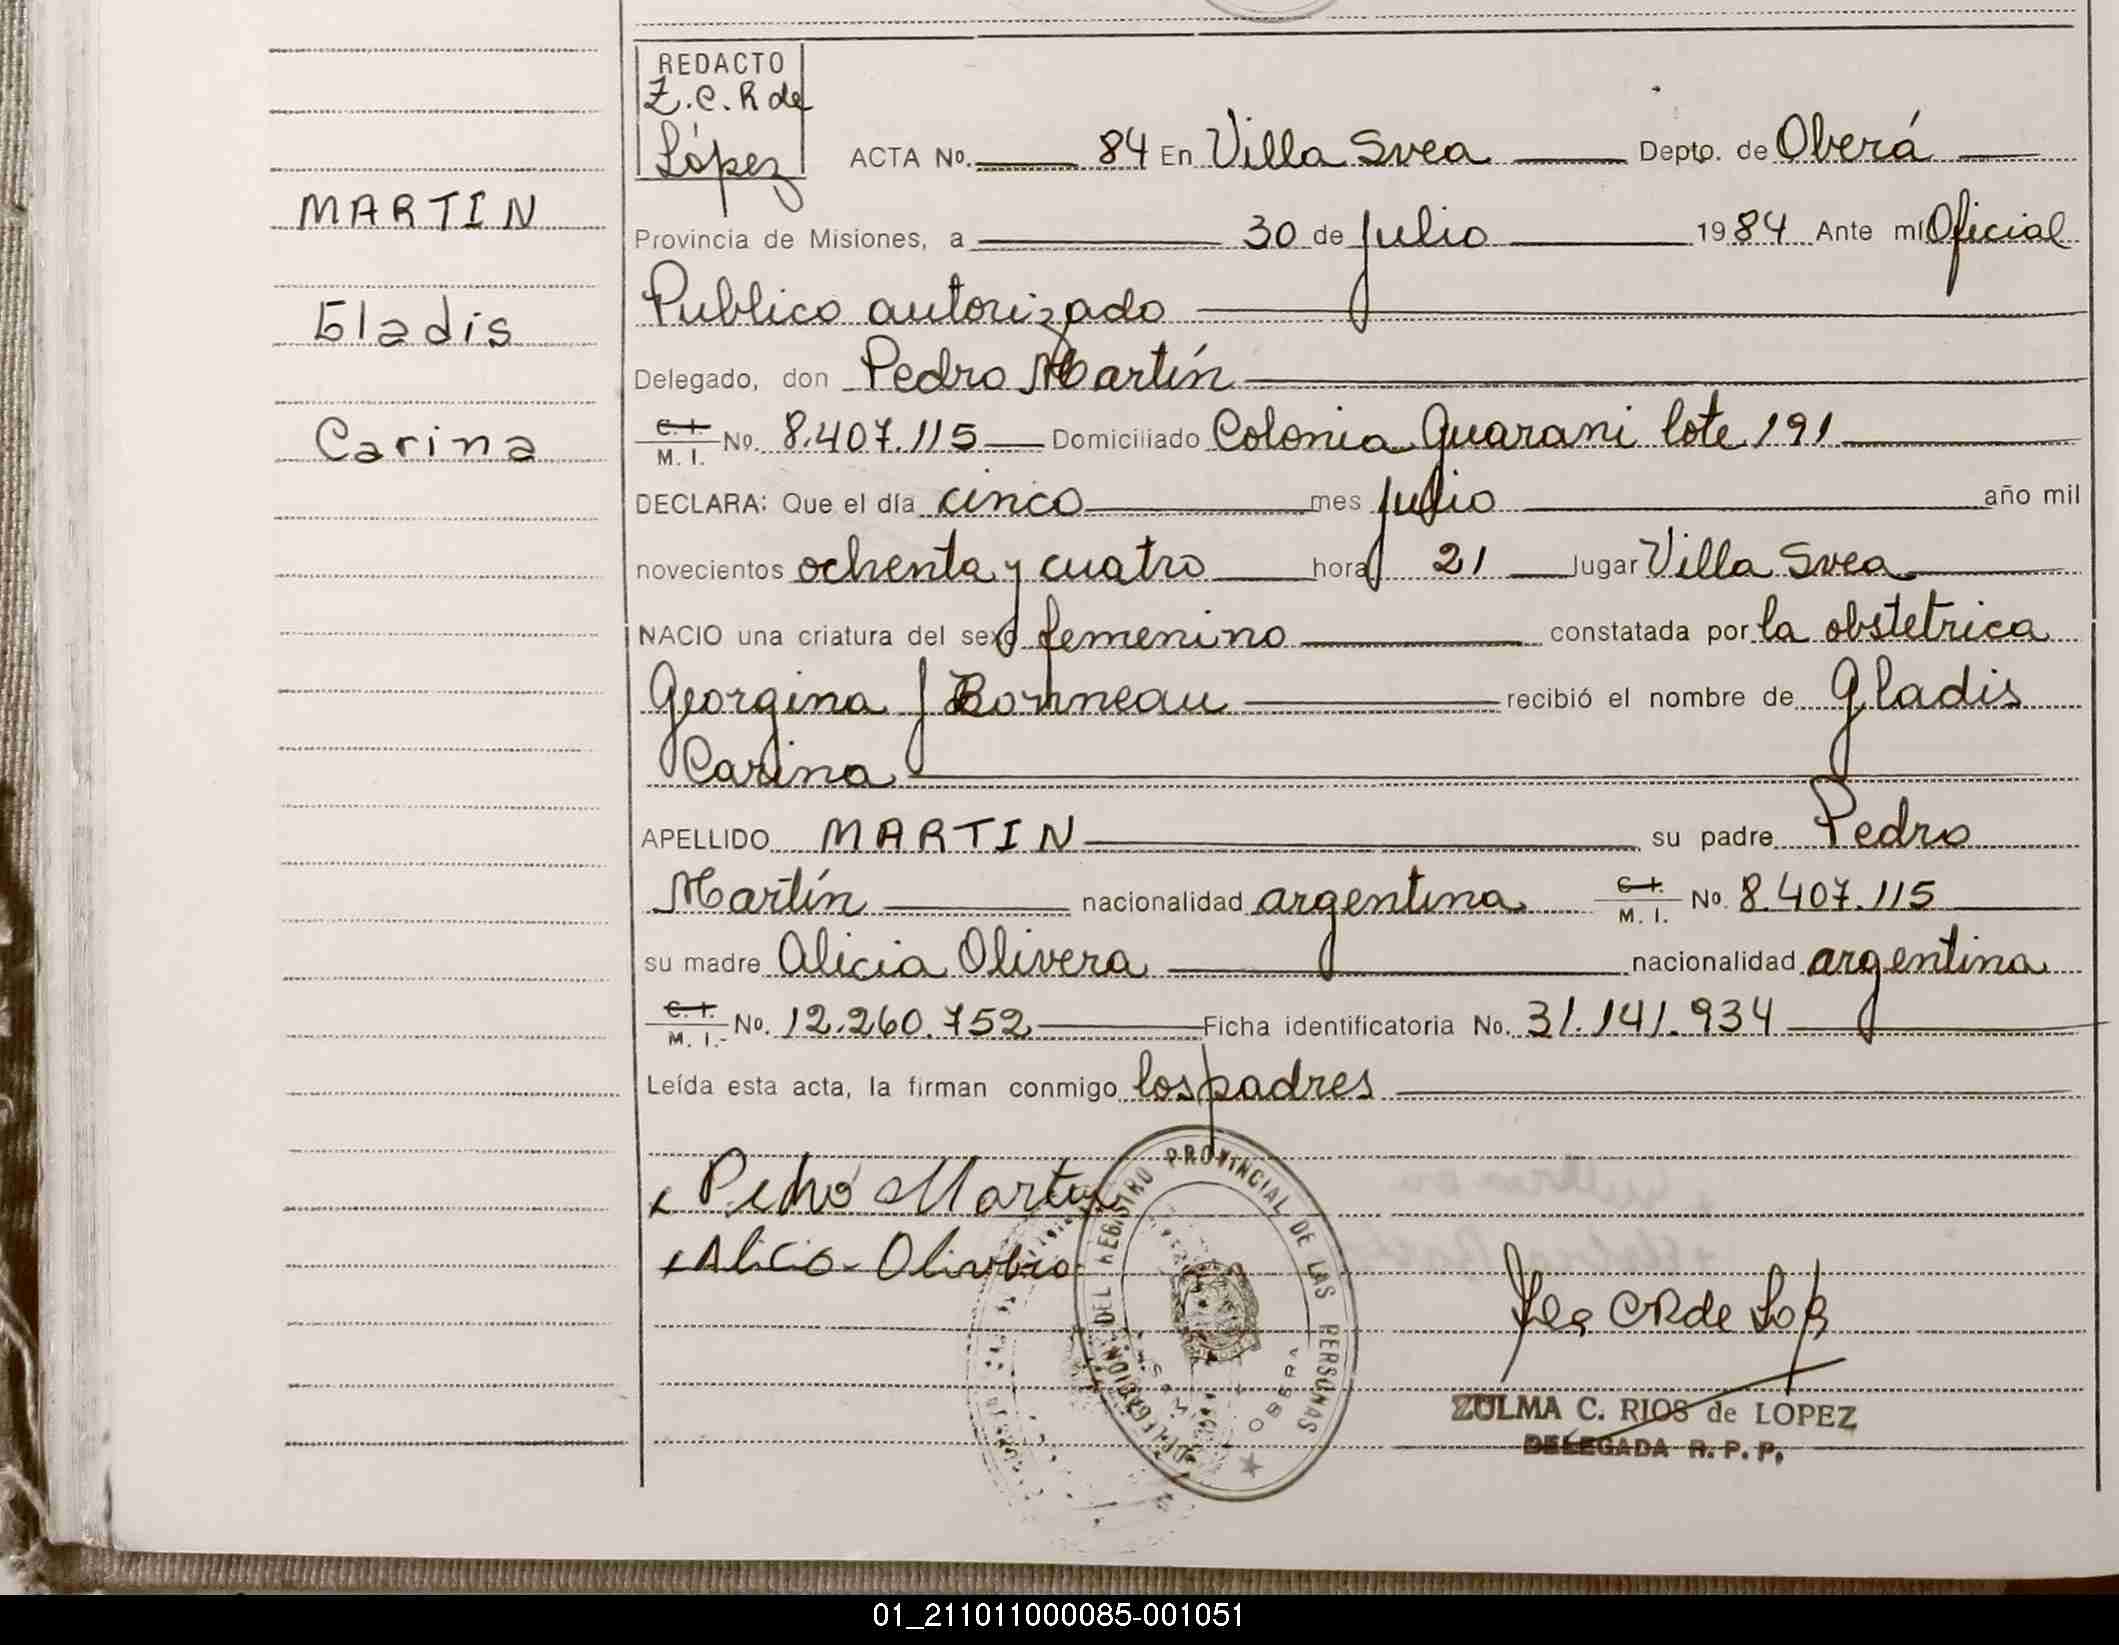 REDACTO
Z.C.R de
López
ACTA No. 84 En Villa Svea Depto. de Oberá
MARTIN
Provincia de Misiones, a 30 de julio 1984 Ante mí Oficial
Publico autorizado
Gladis
Delegado, don Pedro Martín
Carina
C.I. M. I. No. 8.407.115 Domiciliado Colonia Guarani lote 191
DECLARA: Que el día cinco mes julio año mil
novecientos ochenta y cuatro hora 21 lugar Villa Svea
NACIO una criatura del sexo femenino constatada por la obstetrica
Georgina J Bonneau recibió el nombre de Gladis
Carina
APELLIDO MARTIN su padre Pedro
Martín nacionalidad argentina C.I. M. I. No. 8.407.115
su madre Alicia Olivera nacionalidad argentina
C. I. M. I.- No. 12.260.752 Ficha identificatoria No. 31.141.934
Leída esta acta, la firman conmigo los padres
Pedro Martin
Alicia Olivera
DELEGACION DEL REGISTRO PROVINCIAL DE LAS PERSONAS
OBERA
ZULMA C. RIOS de LOPEZ
DELEGADA R. P. P.
01_211011000085-001051